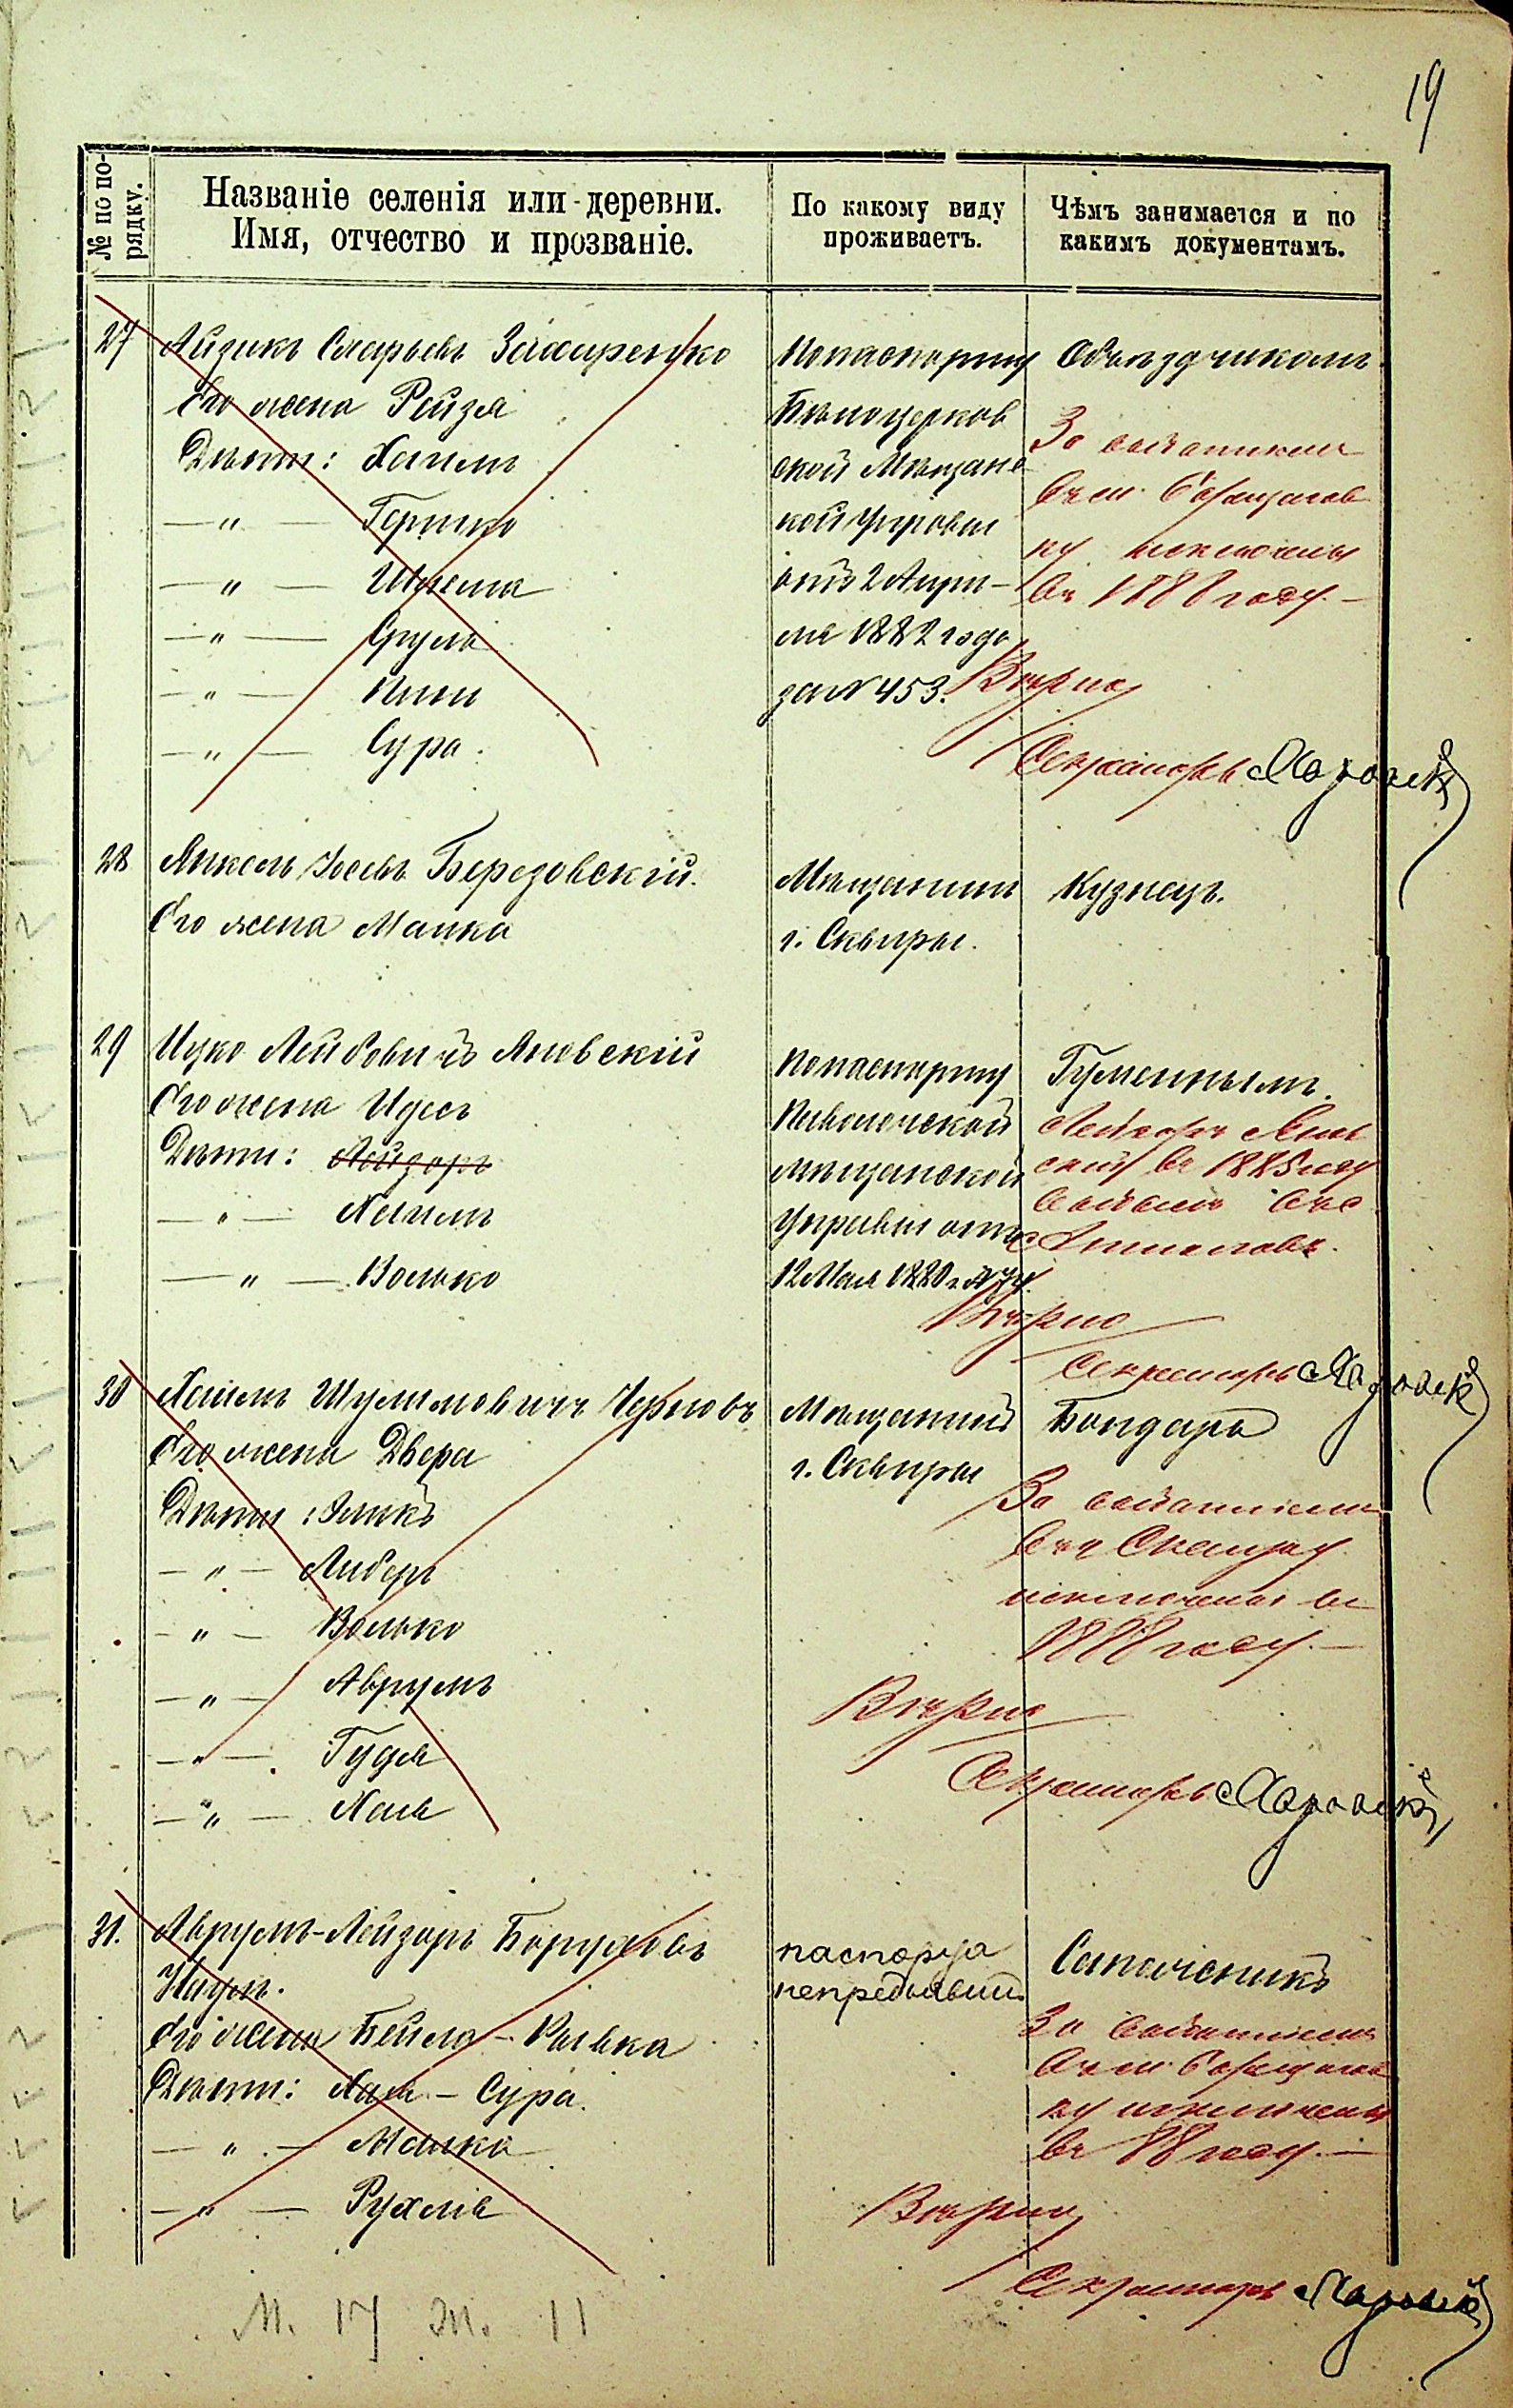 19
№ по по-
рядку.
Названіе селенія или деревни.
Имя, отчество и прозваніе.
По какому виду
проживаетъ.
Чѣмъ занимается и по
какимъ документамъ.
27 Айзикъ Захаренко
Его жена Рейзя
Дѣти: Хаимъ
—„— Гершко
—„—
—„— Сруль
—„—
—„— Сура.
По паспорту
Бѣлоцерков
ской Мѣщанс
кой Управы
отъ 2 Апрѣ-
ля 1882 года
за № 453.
Объездчикомъ.
За выбытіемъ
въ м.
ку исключены
въ 1888 году.—
Вѣрно
Секретарь
28 Янкель Іосевъ Березовскій.
Его жена Малка
Мѣщанинъ
г. Сквиры.
Кузнецъ.
29 Ицко Лейбовичъ Яновскій
Его жена Идесъ
Дѣти: Лейзоръ
—„— Хаимъ
—„— Волько
По паспорту
Паволочской
мѣщанской
Управы отъ
12 Мая 1880 г. №
Гуменнымъ.
Лейзоръ Янов
скій въ 1885 году
выбылъ въ с.
Вѣрно
Секретарь
30 Хаимъ Шулимовичъ Черновъ
Его жена Двера
Дѣти: Эликъ
—„— Либеръ
—„— Волько
—„— Аврумъ
—„— Гудя
—„— Хая
Мѣщанинъ
г. Сквиры
Бондарь
За выбытіемъ
въ г. Сквиру
исключены въ
1888 году.—
Вѣрно
Секретарь
31. Аврумъ-Лейзоръ Боруховъ
Его жена Бейла - Ривка
Дѣти: Хая - Сура.
—„— Малка
—„— Рухля
паспорта
непредъявилъ
Сапожникъ
За выбытіемъ
въ м.
ку исключены
въ 88 году.—
Вѣрно
Секретарь
М. 17 Ж. 11